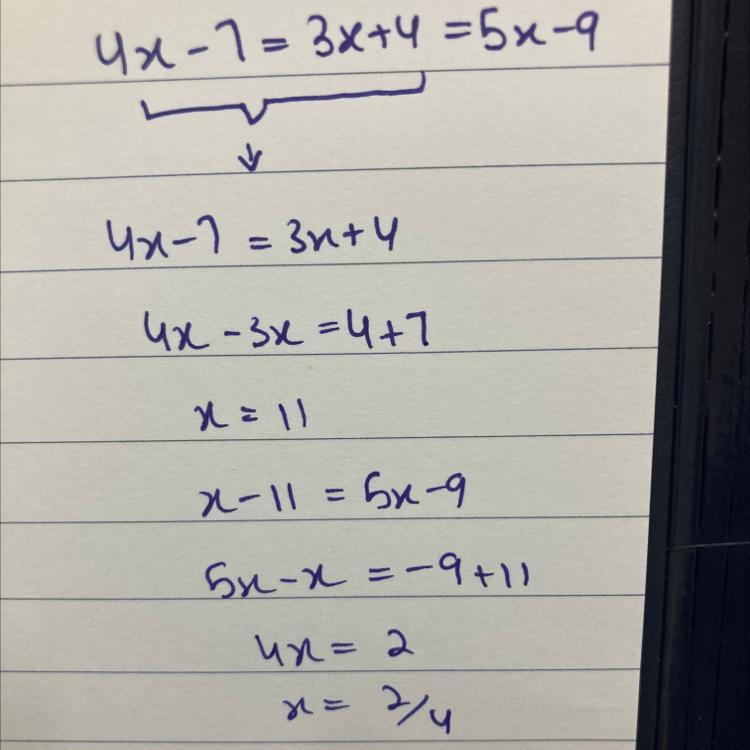 4x-7=3x+4=5x-9
4x-7=3x+4
4x-3x=4+7
x=11
x-11=5x-9
5x-x=-9+11
4x=2
x=2/4